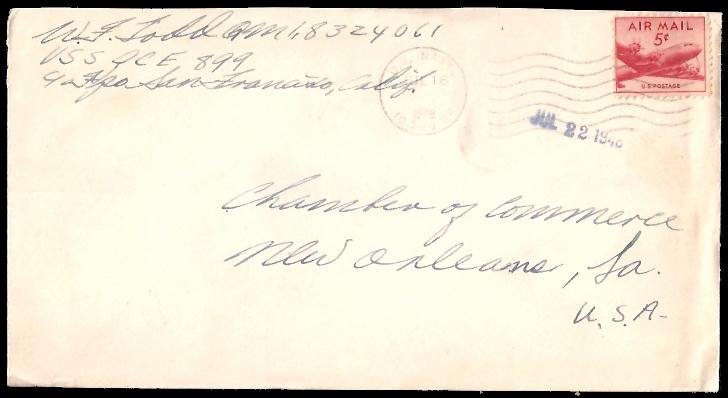 W. F. Todd QM1, 8324061
USS PCE 899
℅ Fpo San Francisco, Calif.
U.S. NAVY
JUL 16
AIR MAIL
5¢
U.S. POSTAGE
JUL 22 1948
Chamber of Commerce
New Orleans, La.
U. S. A-